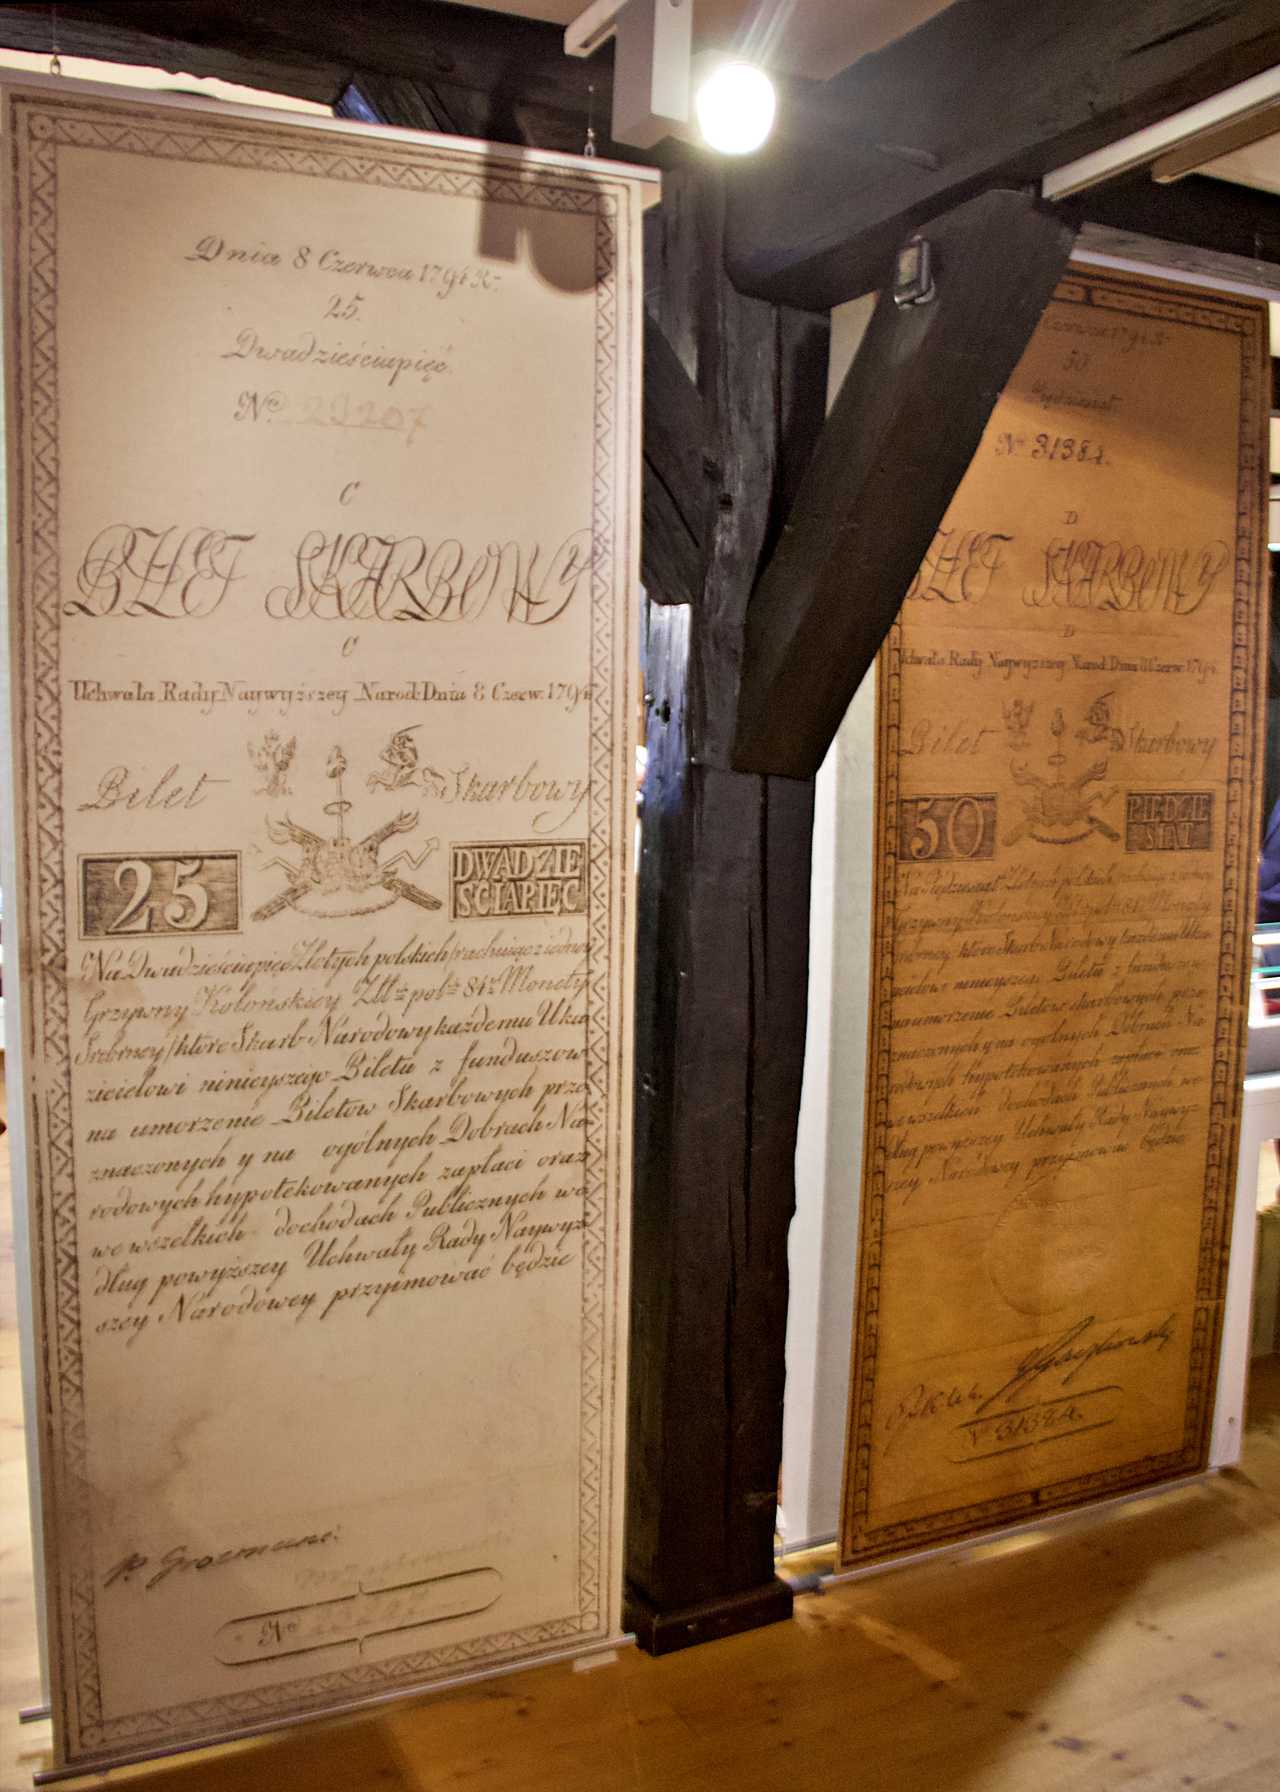 Dnia 8 Czerwca 1794 R.
25.
Dwadzieściapięć.
No. 29207
C
BILET SKARBOWY
C
Uchwała Rady Naywyższey Narod: Dnia 8 Czerw. 1794
Bilet Skarbowy
25 DWADZIE
ŚCIAPIĘĆ
Na Dwadzieściapięć Złotych polskich rachuiąc z iedney
Grzywny Kolońskiey Złł. pol. 84 1/2 Monety
Srebrney które Skarb Narodowy każdemu Uka-
zicielowi ninieyszego Biletu z funduszow
na umorzenie Biletow Skarbowych prze-
znaczonych y na ogólnych Dobrach Na-
rodowych hypotekowanych zapłaci oraz
we wszelkich dochodach Publicznych we-
dług powyższey Uchwały Rady Naywyż-
szey Narodowey przyimować będzie
No
1794 R
50
No 31384.
D
BILET SKARBOWY
D
Uchwała Rady Naywyższey Narod: Dnia 8 Czerw. 1794
Bilet Skarbowy
50 PIĘDZIE
SIĄT
Na Pięćdziesiąt Złotych polskich rachuiąc z iedney
Grzywny Kolońskiey Monety
Srebrney które Skarb Narodowy każdemu Uka-
zicielowi ninieyszego Biletu z funduszow
na umorzenie Biletow skarbowych prze-
znaczonych y na ogolnych Dobrach Na-
rodowych hypotekowanych zapłaci oraz
we wszelkich dochodach Publicznych we-
dług powyższey Uchwały Rady Naywyż-
szey Narodowey przyjmować będzie
31384.